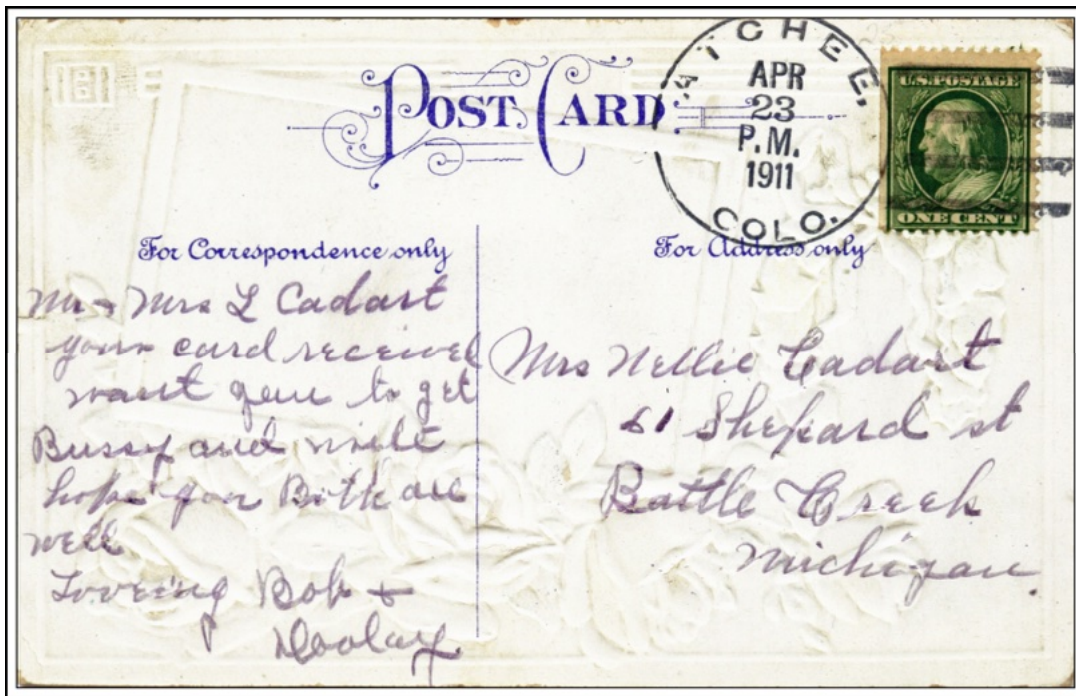 POST CARD
ATCHEE,
APR
23
P.M.
1911
COLO.
U.S. POSTAGE
ONE CENT
For Correspondence only
For Address only
Mr & Mrs L Cadart
your card received
want you to get
Bussy and write
hope you Both are
well
Loveing Bob &
Mrs Nellie Cadart
61 Shepard st
Battle Creek
Michigan